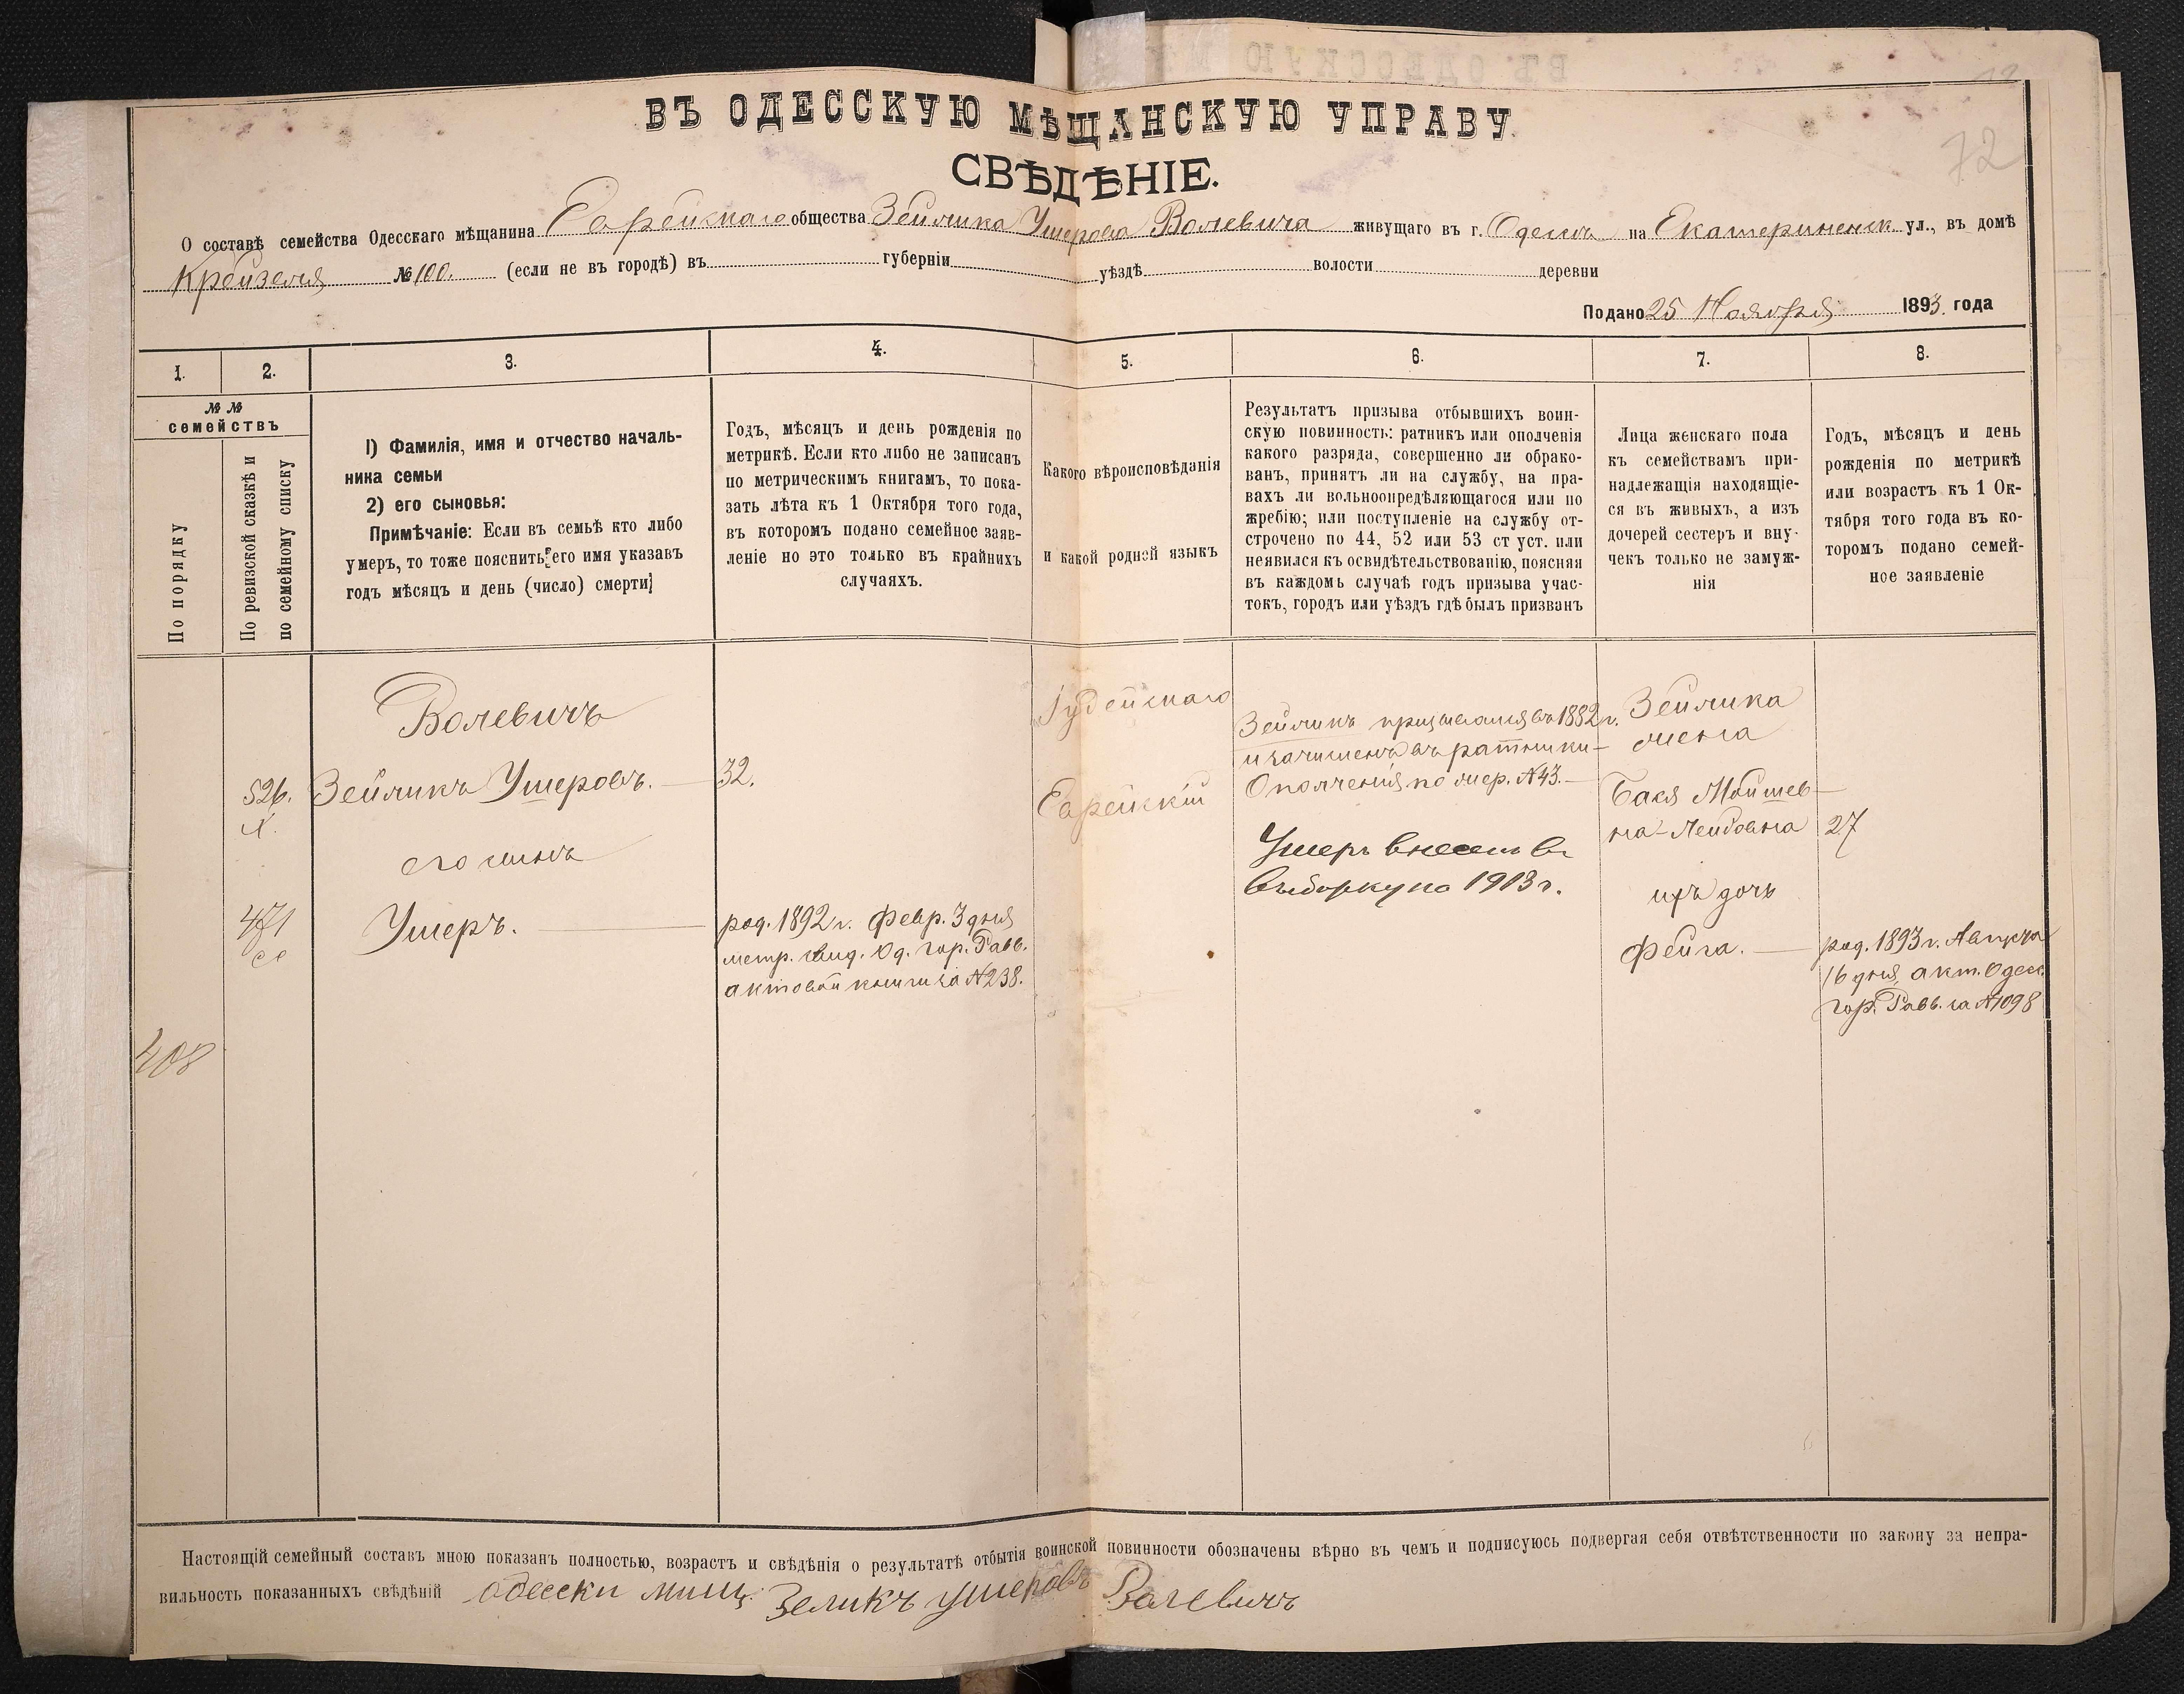 ВЪ ОДЕССКУЮ МѢЩАНСКУЮ УПРАВУ
СВѢДѢНІЕ.
72
О составѣ семейства Одесскаго мѣщанина Еврейскаго общества Зейлика Ушерова Волевича живущаго въ г. Одессѣ на Екатериненск ул., въ домѣ
Крейзеля №100. (если не въ городѣ) въ губерніи уѣздѣ волости деревни
Подано 25 Ноября 1893. года
1. 2. 3. 4. 5. 6. 7. 8.
№ №
семействъ
По порядку
По ревизской сказкѣ и
по семейному списку
1) Фамилія, имя и отчество началь-
ника семьи
2) его сыновья:
Примѣчаніе: Если въ семьѣ кто либо
умеръ, то тоже пояснить его имя указавъ
годъ мѣсяцъ и день (число) смерти]
Годъ, мѣсяцъ и день рожденія по
метрикѣ. Если кто либо не записанъ
по метрическимъ книгамъ, то пока-
зать лѣта къ 1 Октября того года,
въ которомъ подано семейное заяв-
леніе но это только въ крайнихъ
случаяхъ.
Какого вѣроисповѣданія
и какой родной языкъ
Результатъ призыва отбывшихъ воин-
скую повинность: ратникъ или ополченія
какого разряда, совершенно ли обрако-
ванъ, принятъ ли на службу, на пра-
вахъ ли вольноопредѣляющагося или по
жребію; или поступленіе на службу от-
строчено по 44, 52 или 53 ст уст. или
неявился къ освидѣтельствованію, поясняя
въ каждомъ случаѣ годъ призыва учас-
токъ, городъ или уѣздъ гдѣ былъ призванъ
Лица женскаго пола
къ семействамъ при-
надлежащія находящіе-
ся въ живыхъ, а изъ
дочерей сестеръ и вну-
чекъ только не замуж-
нія
Годъ, мѣсяцъ и день
рожденія по метрикѣ
или возрастъ къ 1 Ок-
тября того года въ ко-
торомъ подано семей-
ное заявленіе
408
526.
471
Волевичъ
Зейликъ Ушеровъ.
его сынъ
Ушеръ.
32.
род. 1892 г. Февр. 3 дня
метр. свид. Од. гор. Равв.
актовой книги за №238.
Іудейскаго
Еврейскій
Зейликъ призывался въ 1882 г.
и зачисленъ въ ратники
Ополченія по жер. №43.
Ушеръ внесенъ въ
выборку по 1913 г.
Зейлика
жена
Бася Мойшев-
на-Лейбовна
ихъ дочь
Фейга.
27
род. 1893 г. Августа
16 дня, акт. Одесс.
гор. Равв. за №1098
Настоящій семейный составъ мною показанъ полностью, возрастъ и свѣдѣнія о результатѣ отбытія воинской повинности обозначены вѣрно въ чемъ и подписуюсь подвергая себя отвѣтственности по закону за непра-
вильность показанныхъ свѣдѣній одески мищ. Зеликъ Ушеровъ Волевичъ